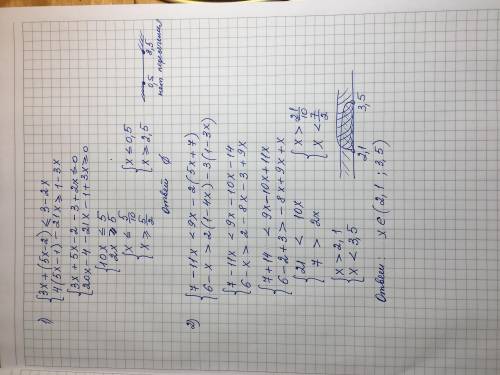 1) {3x + (5x-2) ≤ 3-2x
{4(5x-1) - 21x ≥ 1-3x
{3x + 5x - 2 - 3 + 2x ≤ 0
{20x - 4 - 21x - 1 + 3x ≥ 0
{10x ≤ 5
{2x ≥ 5
{x ≤ 5/10
{x ≥ 5/2
{x ≤ 0,5
{x ≥ 2,5
0,5 2,5
нет пересечения
Ответ ∅
2) {7 - 11x < 9x - 2(5x+7)
{6 - x > 2(1-4x) - 3(1-3x)
{7 - 11x < 9x - 10x - 14
{6 - x > 2 - 8x - 3 + 9x
{7 + 14 < 9x - 10x + 11x
{6 - 2 + 3 > -8x + 9x + x
{21 < 10x
{7 > 2x
{x > 21/10
{x < 7/2
{x > 2,1
{x < 3,5
2,1 3,5
Ответ x ∈ (2,1 ; 3,5)